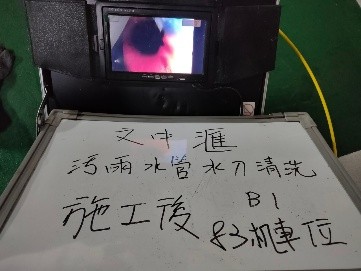 文中滙
污雨水管水刀清洗
施工後 B1
83機車位